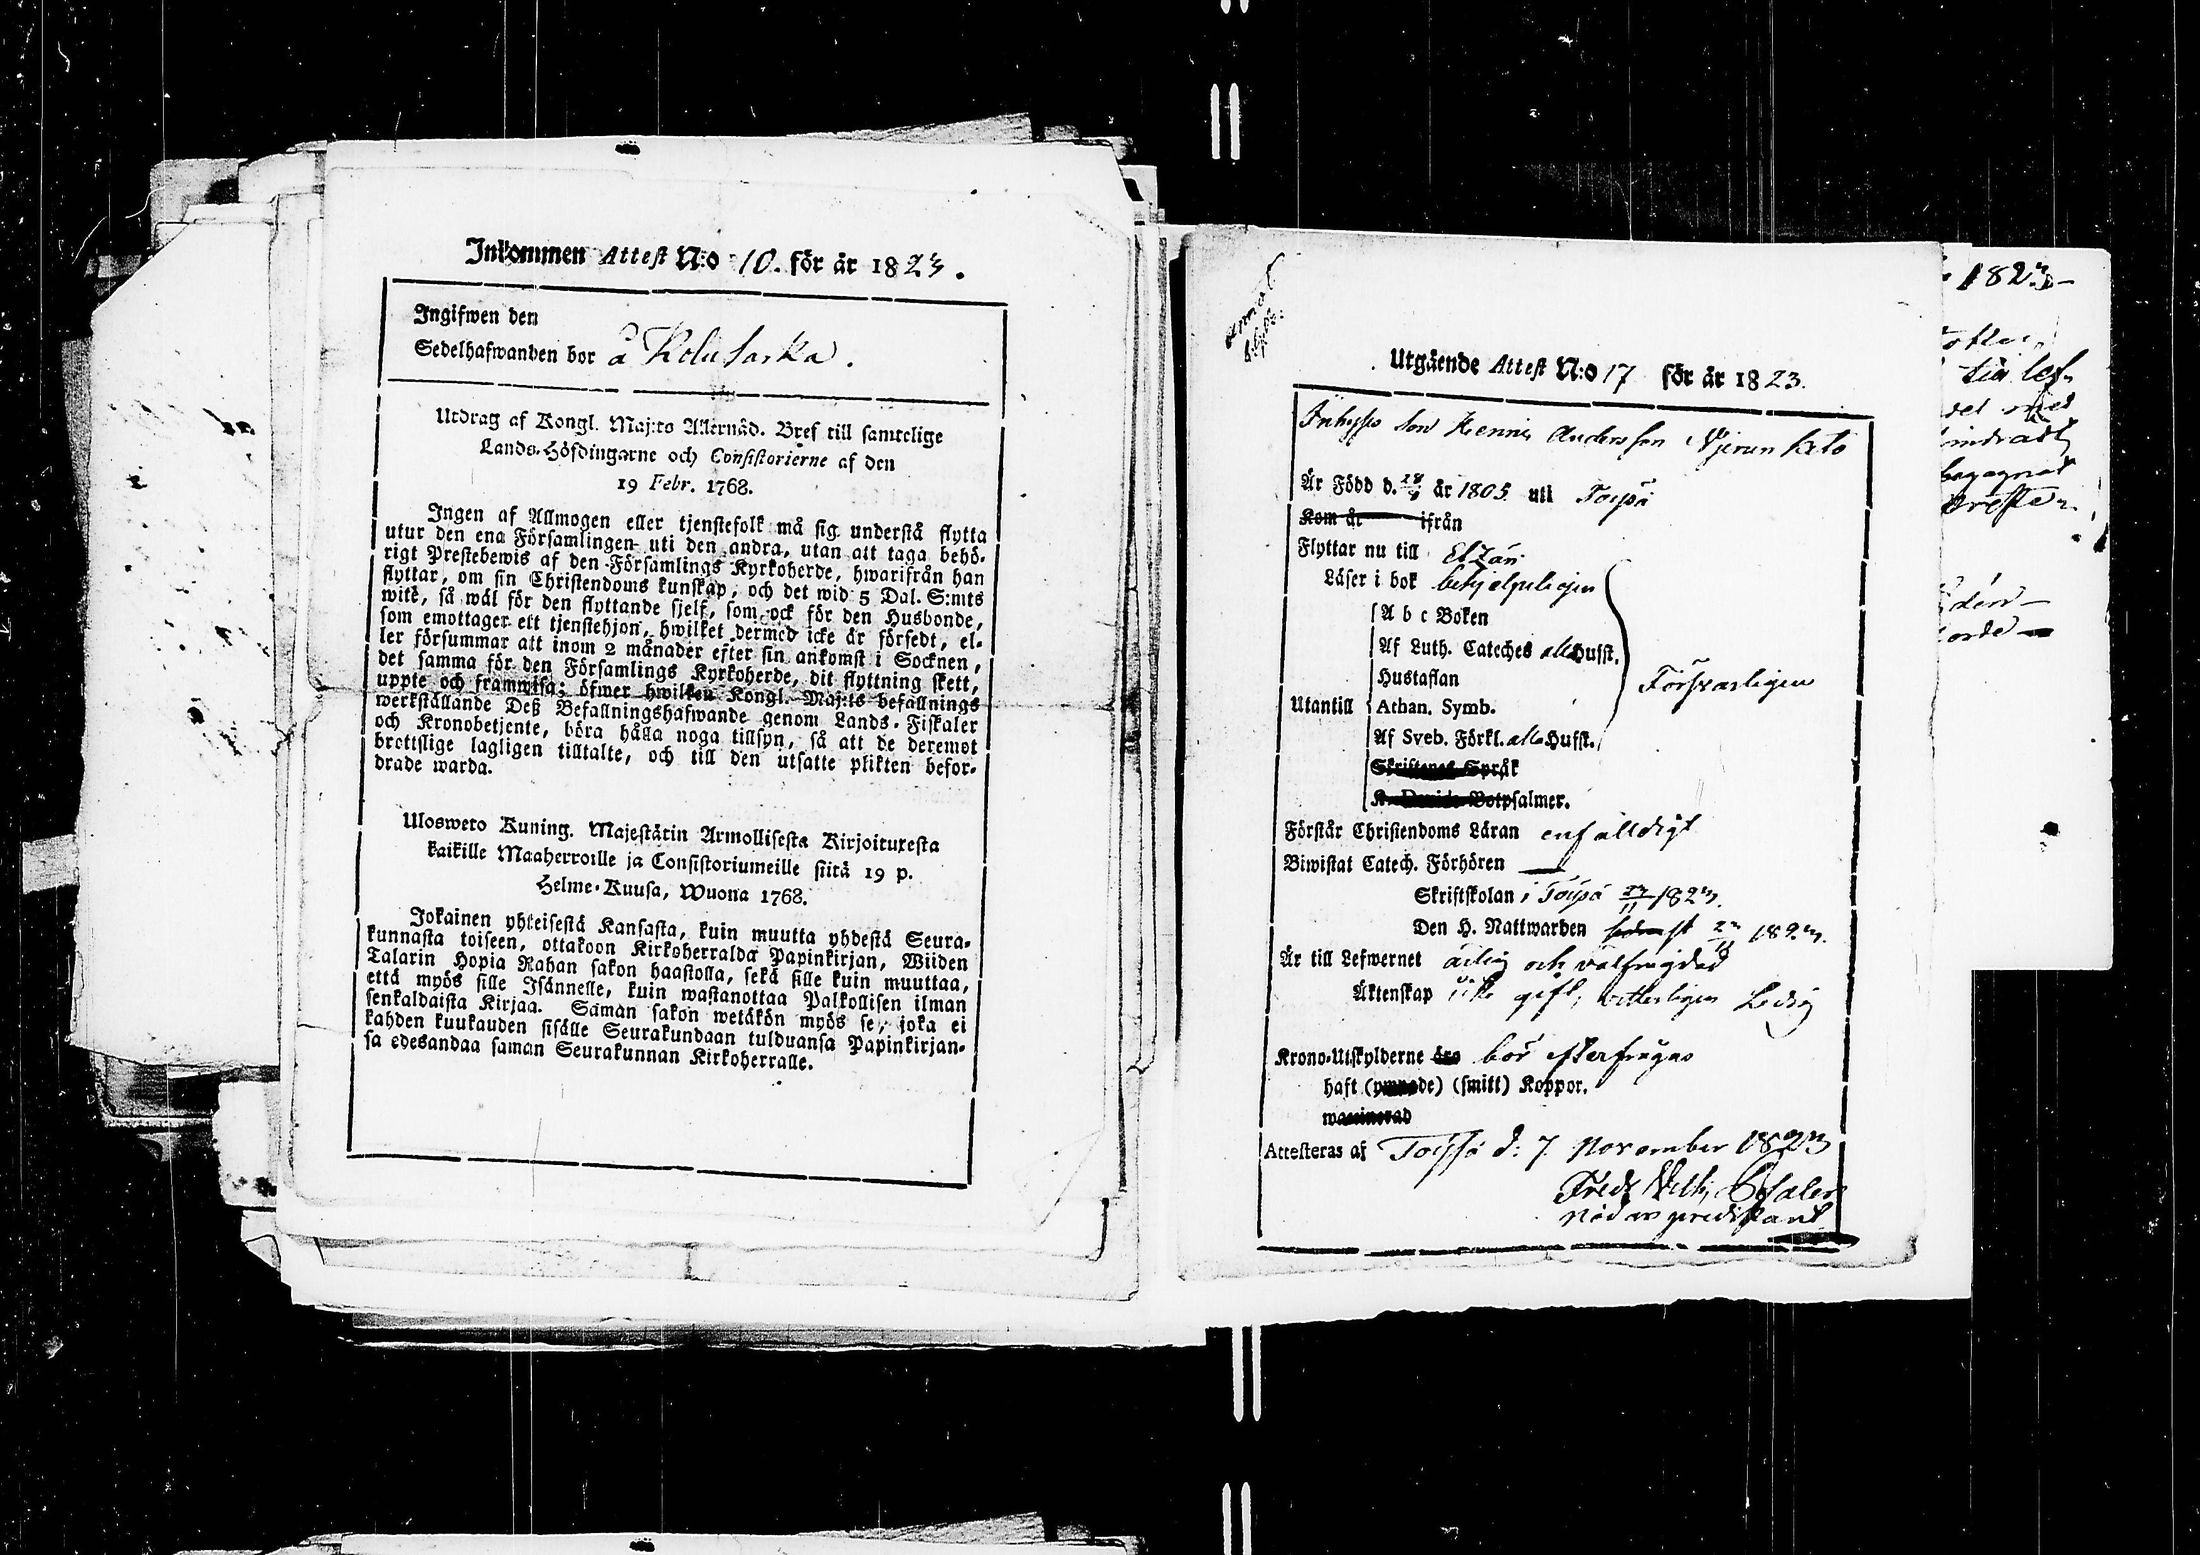 Inkommen Attest N:o 10. för år 1823.
Ingifwen den
Sedelhafwanden bor å Kolusarka.
Utdrag af Kongl. Maj:ts Allernåd. Bref till samtelige
Lands-Höfdingarne och Consistorierne af den
19 Febr. 1768.
Ingen af Allmogen eller tjenstefolk må sig understå flytta
utur den ena Församlingen uti den andra, utan att taga behö-
rigt Prestebewis af den Församlings Kyrkoherde, hwarifrån han
flyttar, om sin Christendoms kunskap, och det wid 5 Dal. S:mts
wite, så wäl för den flyttande sjelf, som ock för den Husbonde,
som emottager ett tjenstehjon, hwilket dermed icke är försedt, el-
ler försummar att inom 2 månader efter sin ankomst i Socknen,
det samma för den Församlings Kyrkoherde, dit flyttning skett,
uppte och framwisa; öfwer hwilken Kongl. Maj:ts befallnings
werkställande Deß Befallningshafwande genom Lands-Fiskaler
och Kronobetjente, böra hålla noga tillsyn, så att de deremot
brottslige lagligen tilltalte, och till den utsatte plikten befor-
drade warda.
Ulosweto Kuning. Majestätin Armollisesta Kirjoituxesta
kaikille Maaherroille ja Consistoriumeille siitä 19 p.
Helme-Kuusa, Wuona 1768.
Jokainen yhteisestä Kansasta, kuin muutta yhdestä Seura-
kunnasta toiseen, ottakoon Kirkoherralda Papinkirjan, Wiiden
Talarin Hopia Rahan sakon haastolla, sekä sille kuin muuttaa,
että myös sille Isännelle, kuin wastanottaa Palkollisen ilman
senkaldaista Kirjaa. Saman sakon wetäkön myös se, joka ei
kahden kuukauden sisälle Seurakundaan tulduansa Papinkirjan-
sa edesandaa saman Seurakunnan Kirkoherralle.
Utgående Attest N:o 17 för år 1823.
Inhyses Son Henric Andersson
Är Född d. år 1805 uti Töysä
Kom år ifrån
Flyttar nu till Etzäri
Läser i bok behjelpeligen
A b c Boken
Af Luth. Cateches alla Hufst.
Hustaflan
Utantill Athan. Symb. Försvarligen
Af Sveb. Förkl. alla Hufst.
Skriftenes Språk
K. Davids Botpsalmer.
Förstår Christendoms Läran enfalldigt
Biwistat Catech. Förhören —
Skriftskolan i Töysä 1823.
Den H. Nattwarden 1823.
Är till Lefwernet ärlig och välfrägdad
Äktenskap icke gift, vetterligen Ledig
Krono-Utskylderne äro bör efterfrågas
haft (ympade) (smitt) Koppor.
waccinerad
Attesteras af Töysä d: 7 November 1823
Fredr
Nådårspredikant
1823